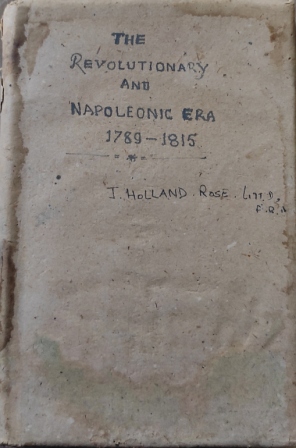 THE
REVOLUTIONARY
AND
NAPOLEONIC ERA
1789-1815
J. HOLLAND. ROSE. Litt.D.